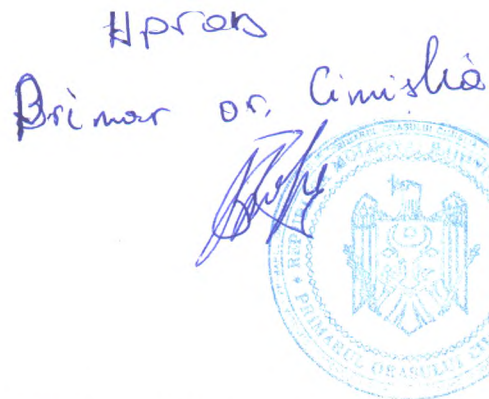 Aprob
Primar or. Cimișlia
REPUBLICA MOLDOVA
PRIMARUL ORAȘULUI